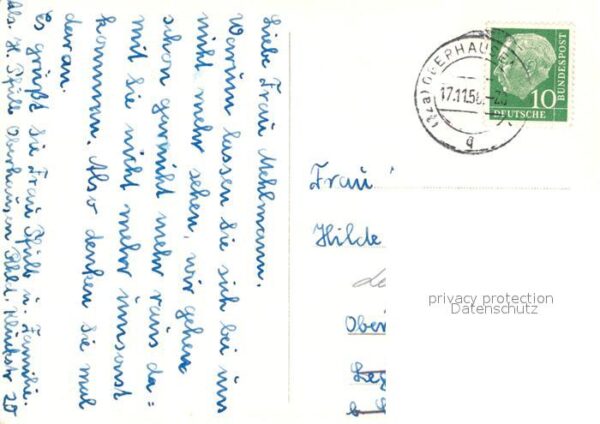 Liebe Frau Mehlmann.
Warum lassen Sie sich bei uns
nicht mehr sehen, wir gehen
schon garnicht mehr raus da=
mit sie nicht mehr umsonst
kommen. Also denken Sie mal
daran.
Es grüßt Sie Frau Pfülb u. Familie.
Abs. H. Pfülb Oberhausen Rhld. 20
(22a) OBERHAUSEN
17.11.56.
g
10
BUNDESPOST
DEUTSCHE
Frau
Hilde
Ober
privacy protection
Datenschutz